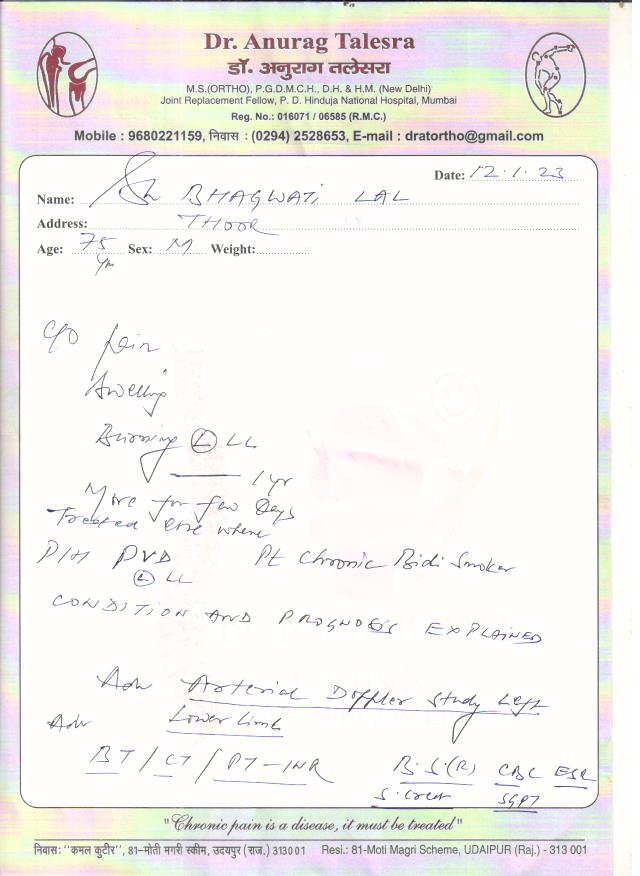 Dr. Anurag Talesra
डॉ. अनुराग तलेसरा
M.S.(ORTHO), P.G.D.M.C.H., D.H. & H.M. (New Delhi)
Joint Replacement Fellow, P. D. Hinduja National Hospital, Mumbai
Reg. No.: 016071 / 06585 (R.M.C.)
Mobile : 9680221159, निवास : (0294) 2528653, E-mail : dratortho@gmail.com
Date: 12.1.23
Name: Sh BHAGWATI LAL
Address: THOOR
Age: 75 Sex: M Weight:
Yrs
C/O pain
Swelling
Burning (L) LL
1 yr
More for few Days
Treated else where
P/H PVD Pt Chronic Bidi Smoker
(L) LL
CONDITION AND PROGNOSIS EXPLAINED
Adv Arterial Doppler Study Left
Adv Lower limb
BT / CT / PT-INR B.S.(R) CBC ESR
S. Creat SGPT
"Chronic pain is a disease, it must be treated"
निवास: "कमल कुटीर", 81-मोती मगरी स्कीम, उदयपुर (राज.) 313001 Resi.: 81-Moti Magri Scheme, UDAIPUR (Raj.) - 313 001